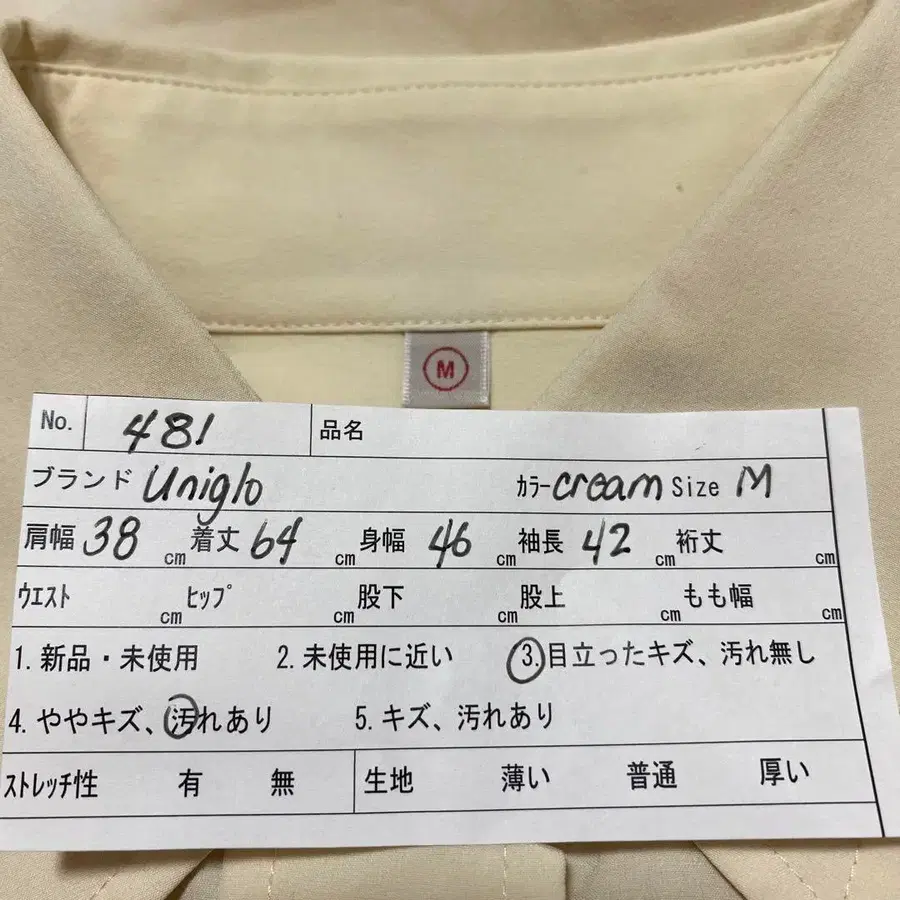 M
No. 481 品名
ブランド Uniglo ｶﾗｰ cream Size M
肩幅 38 cm 着丈 64 cm 身幅 46 cm 袖長 42 cm 裄丈 cm
ｳエスト cm ﾋｯﾌﾟ cm 股下 cm 股上 cm もも幅 cm
1. 新品・未使用 2. 未使用に近い 3. 目立ったキズ、汚れ無し
4. ややキズ、汚れあり 5. キズ、汚れあり
ｽﾄﾚｯﾁ性 有 無 生地 薄い 普通 厚い